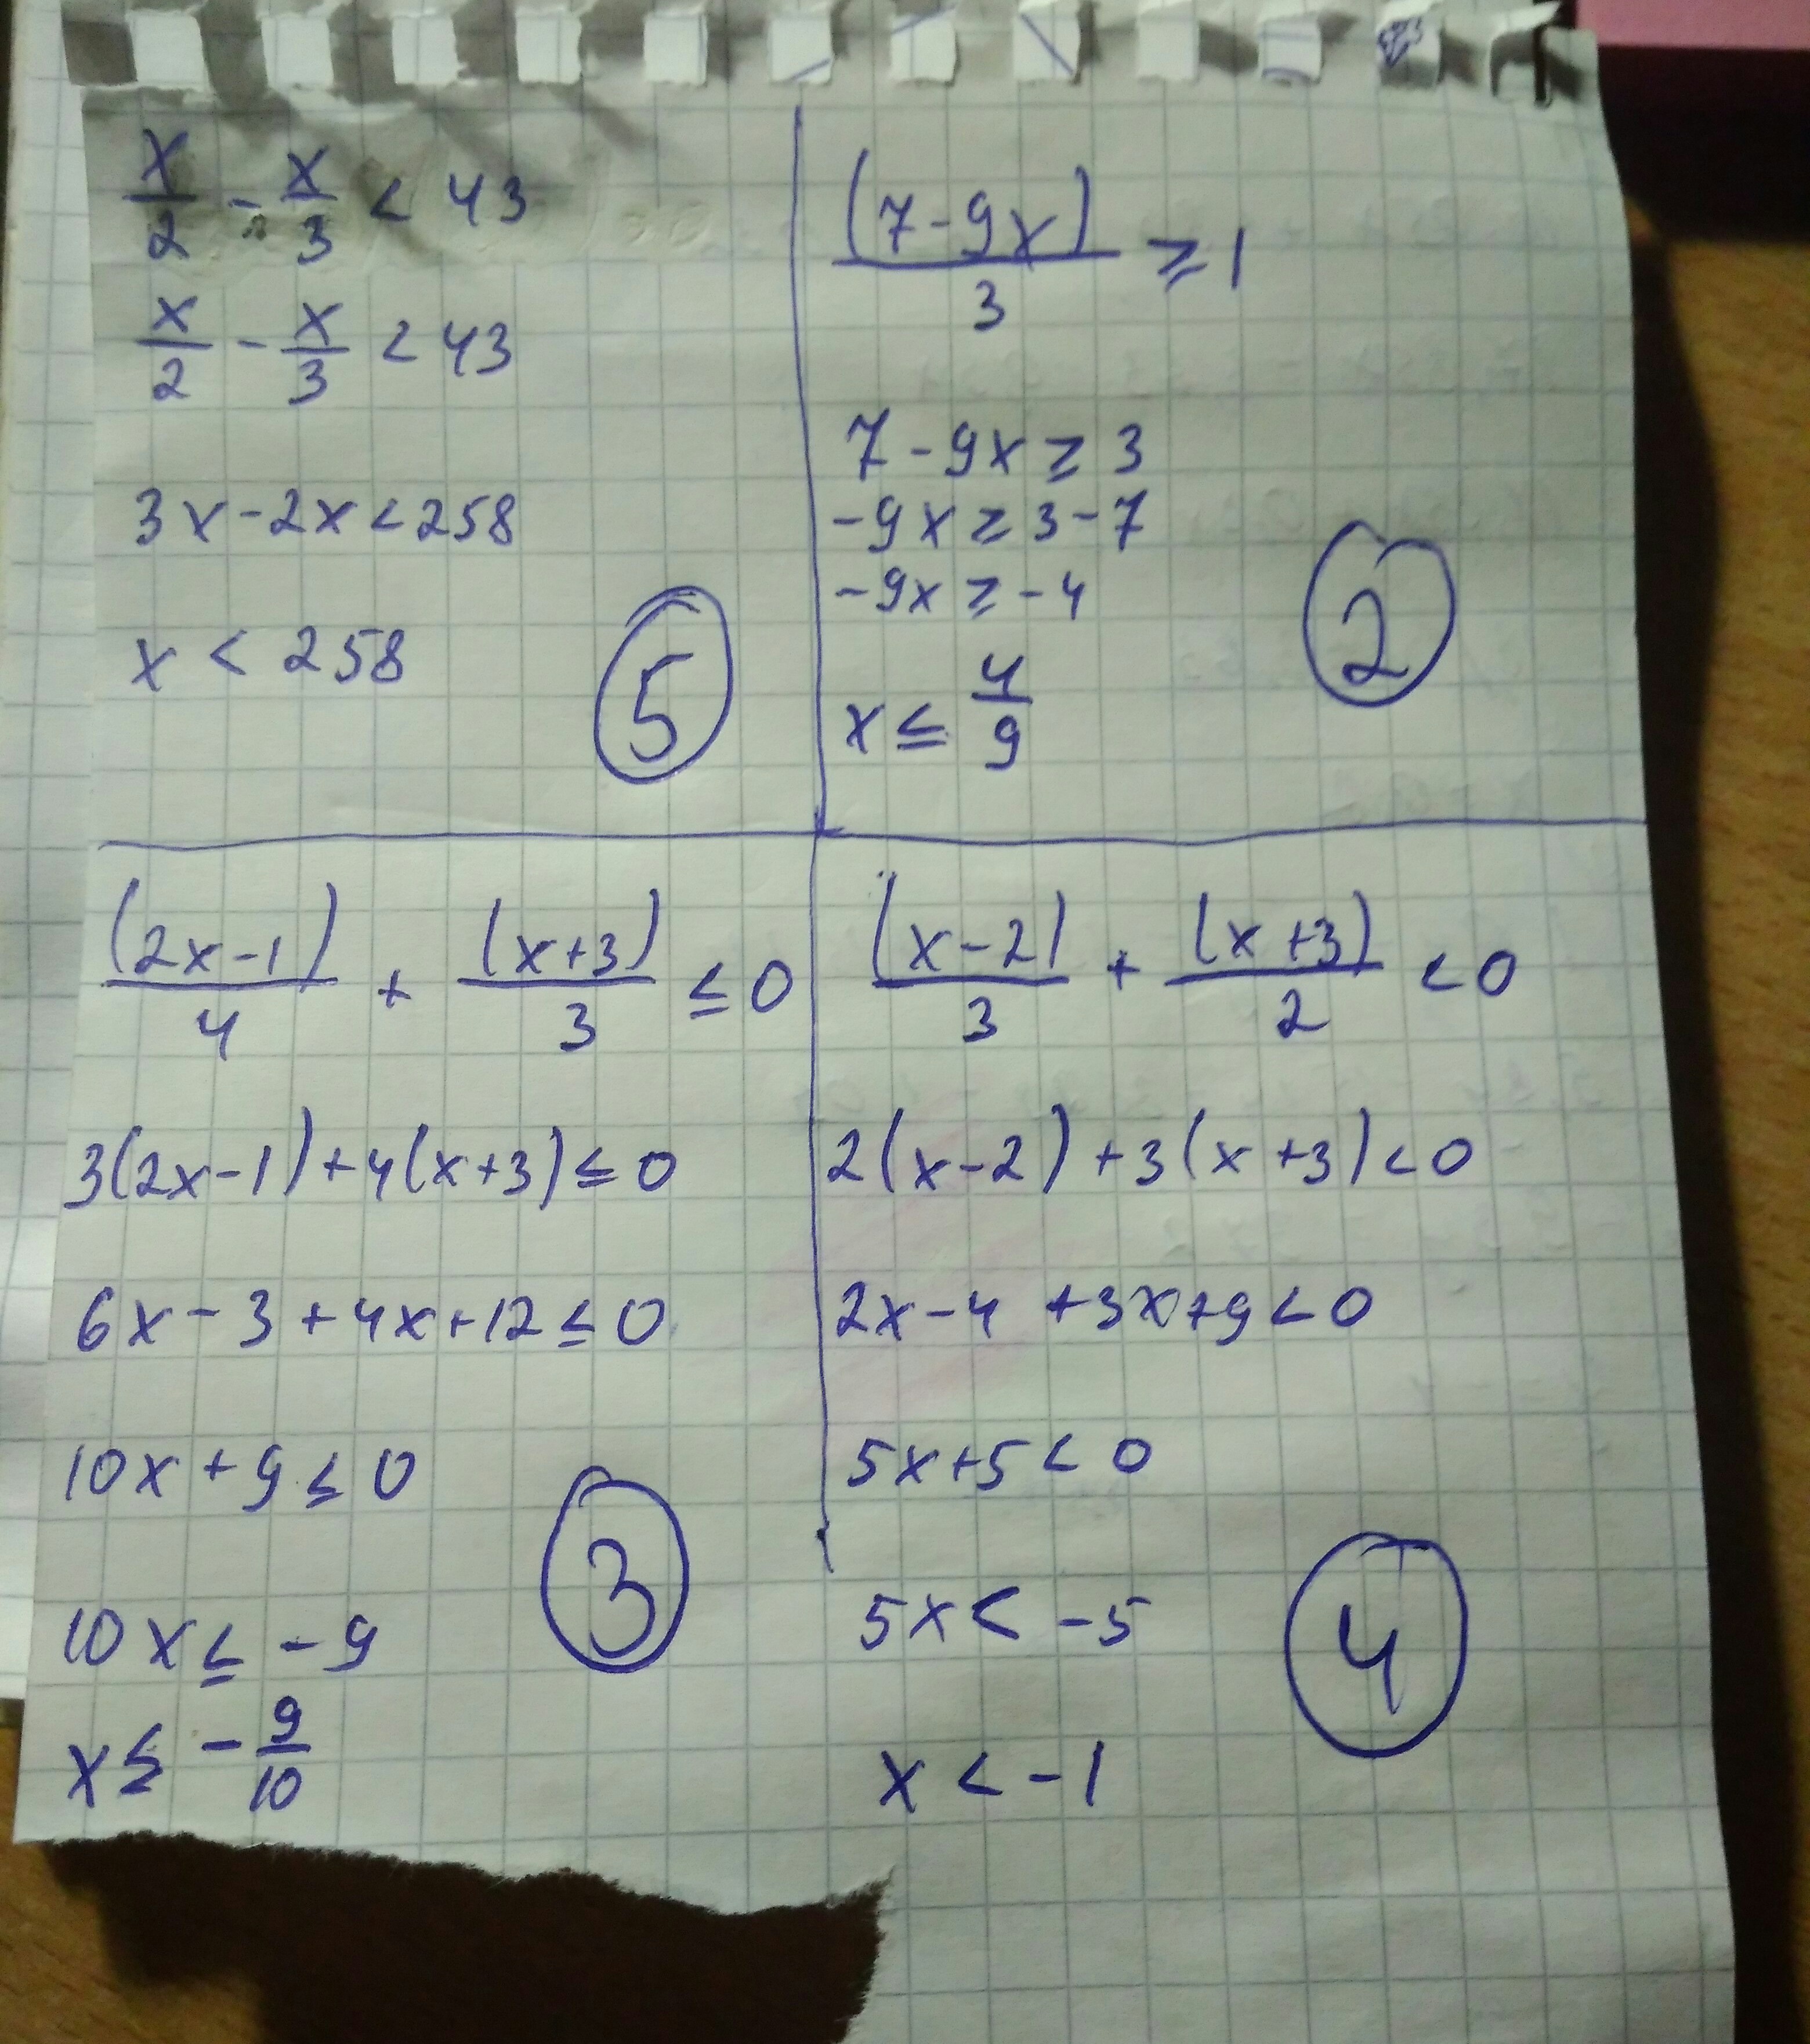 x/2 - x/3 < 43
x/2 - x/3 < 43
3x-2x<258
x < 258
5
(7-9x)/3 ≥ 1
7-9x ≥ 3
-9x ≥ 3-7
-9x ≥ -4
x ≤ 4/9
2
(2x-1)/4 + (x+3)/3 ≤ 0
3(2x-1)+4(x+3) ≤ 0
6x-3+4x+12 ≤ 0
10x+9 ≤ 0
10x ≤ -9
x ≤ -9/10
3
(x-2)/3 + (x+3)/2 < 0
2(x-2)+3(x+3)<0
2x-4+3x+9<0
5x+5<0
5x < -5
x < -1
4